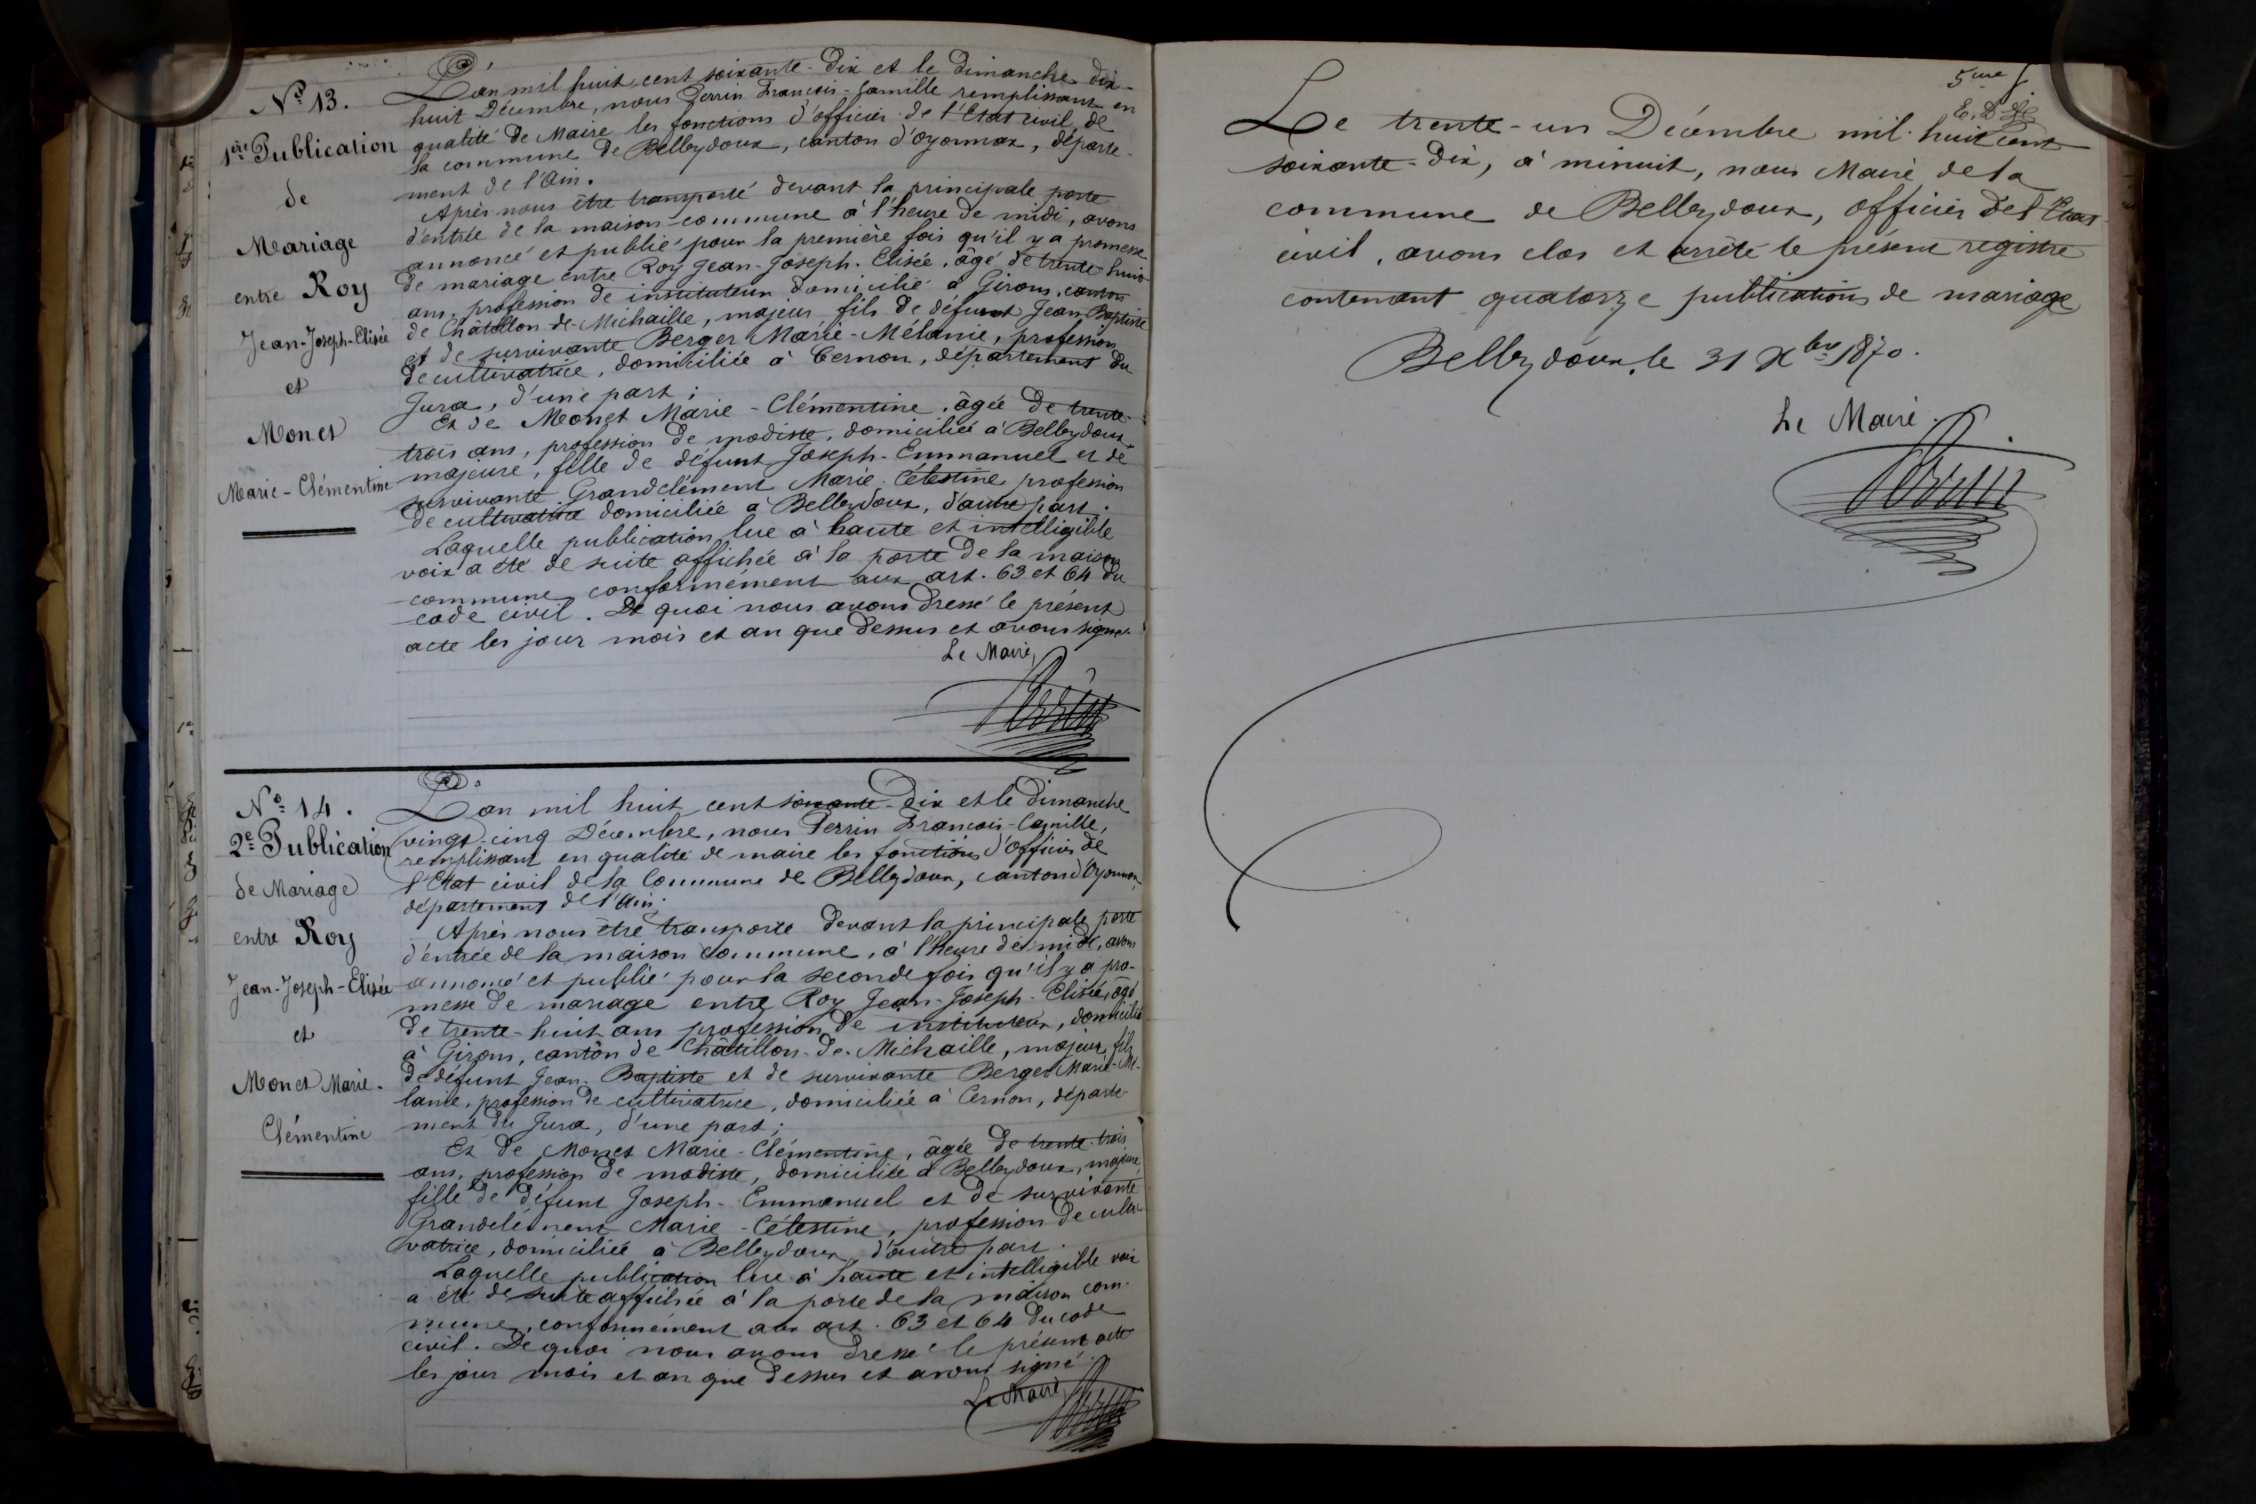 N° 13.
1ère Publication
de
Mariage
entre Roy
Jean-Joseph-Elisée
et
Monet
Marie-Clémentine
L'an mil huit cent soixante-dix et le dimanche dix-
huit Décembre, nous Perrin François-Camille remplissant en
qualité de Maire les fonctions d'officier de l'Etat civil de
la commune de Belleydoux, canton d'Oyonnax, départe-
ment de l'Ain.
Après nous être transporté devant la principale porte
d'entrée de la maison commune à l'heure de midi, avons
annoncé et publié pour la première fois qu'il y a promesse
de mariage entre Roy Jean-Joseph-Elisée, âgé de trente-huit
ans, profession de instituteur domicilié à Giron, canton
de Châtillon-de-Michaille, majeur fils de défunt Jean-Baptiste
et de survivante Berger Marie-Mélanie, profession
de cultivatrice, domiciliée à Cernon, département du
Jura, d'une part;
Et de Monet Marie-Clémentine, âgée de trente-
trois ans, profession de modiste, domiciliée à Belleydoux,
majeure, fille de défunt Joseph-Emmanuel et de
survivante Grandclément Marie-Célestine profession
de cultivatrice domiciliée à Belleydoux, d'autre part.
Laquelle publication lue à haute et intelligible
voix a été de suite affichée à la porte de la maison
commune, conformément aux art. 63 et 64 du
code civil. De quoi nous avons dressé le présent
acte les jour mois et an que dessus et avons signé.
Le Maire,
Perrin
N° 14.
2e Publication
de Mariage
entre Roy
Jean-Joseph-Elisée
et
Monet Marie-
Clémentine
L'an mil huit cent soixante-dix et le dimanche
vingt-cinq Décembre, nous Perrin François-Camille,
remplissant en qualité de maire les fonctions d'officier de
l'Etat civil de la Commune de Belleydoux, canton d'Oyonnax,
département de l'Ain.
Après nous être transporté devant la principale porte
d'entrée de la maison commune, à l'heure de midi, avons
annoncé et publié pour la seconde fois qu'il y a pro-
messe de mariage entre Roy Jean-Joseph-Elisée, âgé
de trente-huit ans profession de instituteur, domicilié
à Giron, canton de Châtillon-de-Michaille, majeur, fils
de défunt Jean-Baptiste et de survivante Berger Marie-Mé-
lanie, profession de cultivatrice, domiciliée à Cernon, départe-
ment du Jura, d'une part;
Et de Monet Marie-Clémentine, âgée de trente-trois
ans, profession de modiste, domiciliée à Belleydoux, majeure,
fille de défunt Joseph-Emmanuel et de survivante
Grandclément Marie-Célestine, profession de culti-
vatrice, domiciliée à Belleydoux, d'autre part.
Laquelle publication lue à haute et intelligible voix
a été de suite affichée à la porte de la maison com-
mune, conformément aux art. 63 et 64 du code
civil. De quoi nous avons dressé le présent acte
les jour mois et an que dessus et avons signé.
Le Maire
Perrin
5me f.
Le trente-un Décembre mil huit cent
soixante-dix, à minuit, nous Maire de la
commune de Belleydoux, officier de l'Etat
civil, avons clos et arrêté le présent registre
contenant quatorze publications de mariage
Belleydoux, le 31 Xbre 1870.
Le Maire.
Perrin